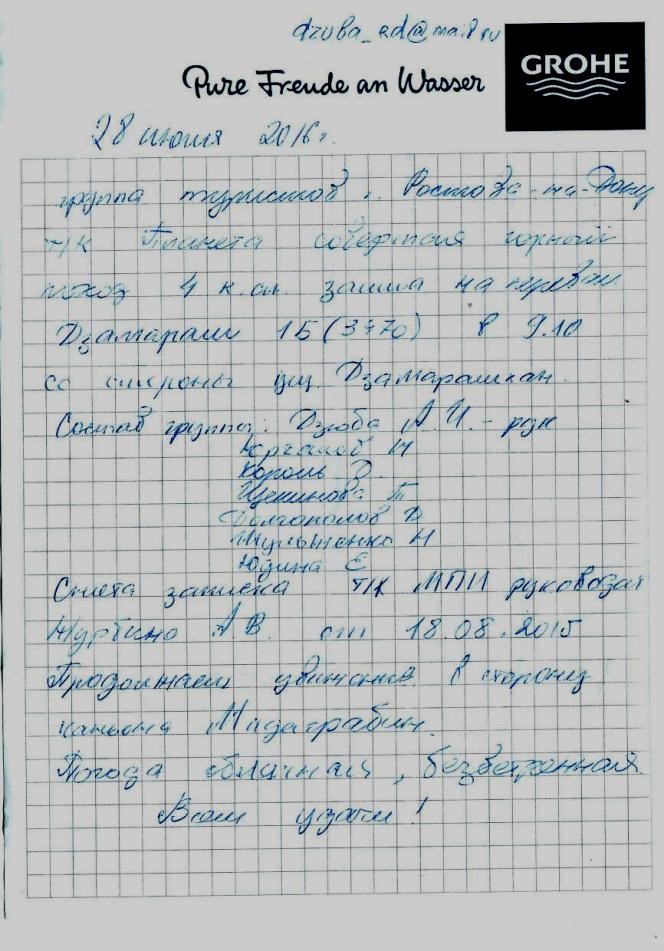 dzuba_ad@mail.ru
GROHE
Pure Freude an Wasser
28 июля 2016г.
группа туристов г. Ростова-на-Дону
т/к Планета совершая горный
поход 4 к.сл. зашла на перевал
Дзамараш 1Б (3470) в 9.10
со стороны ущ. Дзамарашкан.
Состав группы: Дзюба А.И. - рук
Н
Король
Щекинова Т
Долгополов Д
Н
Юдина Е
Снята записка т/к МПИ руковод
А В. от 18.08.2015
Продолжаем движение в сторону
каньона Мидаграбин.
Погода облачная, безветренная
Всем удачи!